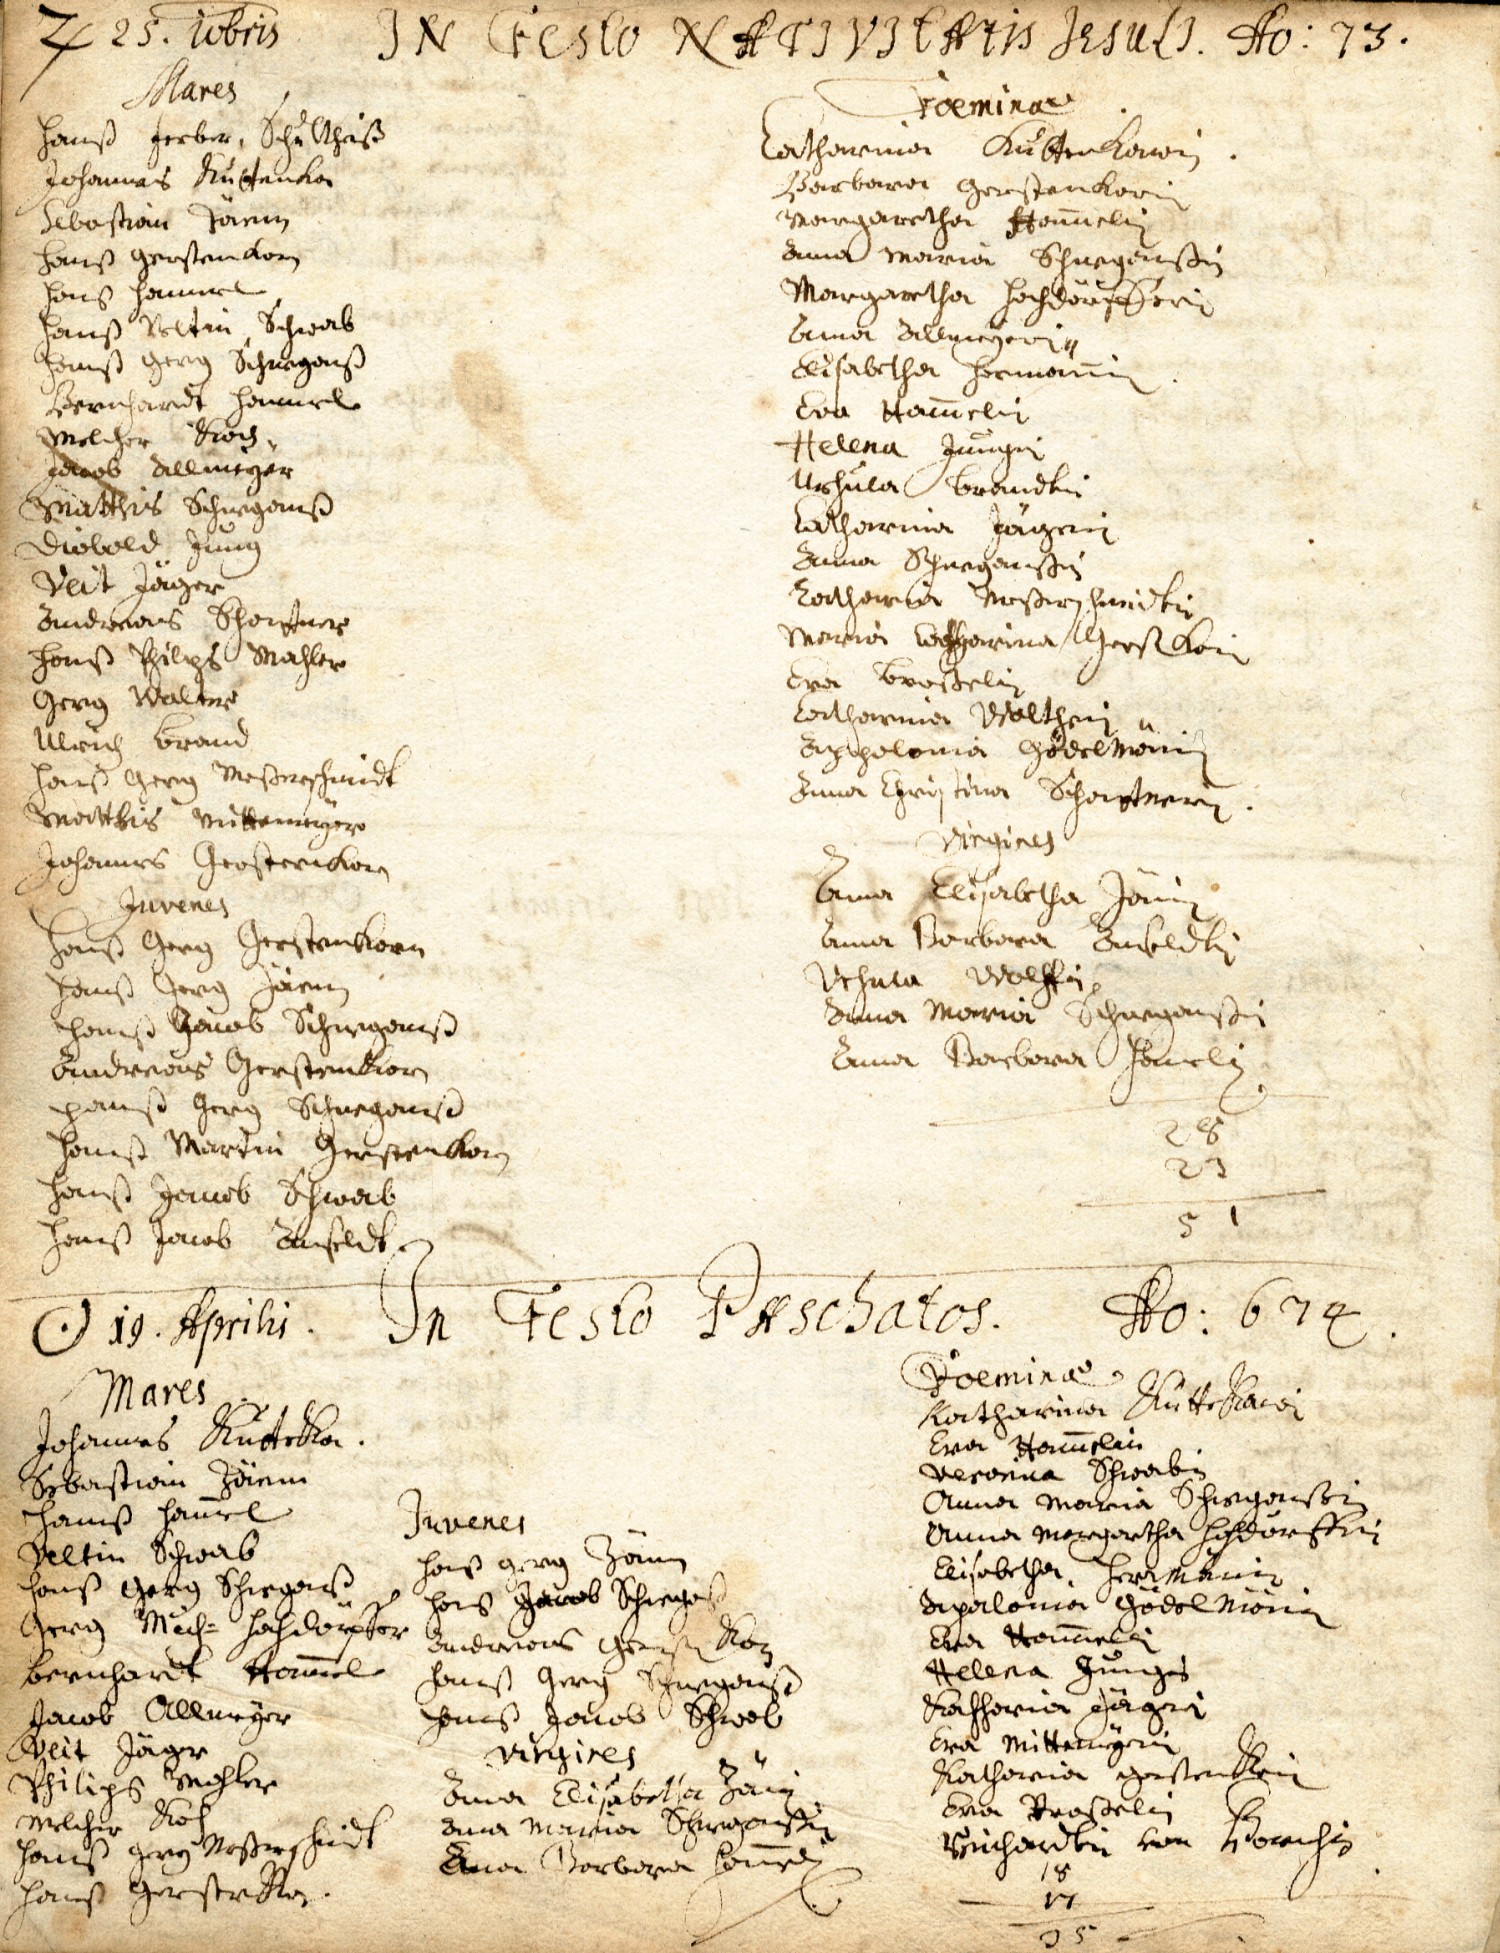 ♃ 25. Xbris In Festo NATIVITATIS JESULI. Ao: 73.
Mares
Hanß Ferber, Schultheiß
Johannes Kuttenkor
Sebastian Zäenn
Hanß Gerstenkorn
Hans Hammel
Hanß Veltin Schwab
Hanß Gerg Schneganß
Bernhardt Hammel
Melcher Koch
Jacob Allmeyer
Matthis Schneganß
Diebold Jung
Veit Jäger
Andreas Schartner
Hanß Philips Mahler
Gerg Walter
Ulrich Brand
Hanß Gerg Meßerschmidt
Matthis Mittemeyer
Johannes Gerstenkorn
Juvenes
Hanß Gerg Gerstenkorn
Hanß Gerg Zäenn
Hanß Jacob Schnegonß
Andreas Gerstenkorn
Hanß Gerg Schneganß
Hanß Martin Gerstenkorn
Hanß Jacob Schwab
Hanß Jacob Anseldt
Foeminae
Catharina Kuttenkorin.
Barbara Gerstenkorin
Margaretha Ham̄elin
Anna Maria Schnegonßin
Margaretha Hochdörfferin
Anna Allmeyerin
Elisabetha Herman̄in
Eva Ham̄elin
Helena Jungin
Urschula Brandtin
Catharina Jägerin
Anna Schneganßin
Catharina Meßerschmidtin
Maria Catharina Gerstkorin
Eva Broßelin
Catharina Waltherin
Appolonia Gödelmänin
Anna Christina Schartnerin.
Virgines
Anna Elisabetha Zänin
Anna Barbara Anseldtin
Urschula Wolffin
Anna Maria Schneganßin
Anna Barbara Hamelin
28
23
51
☉ 19. Aprilis. In Festo Paschatos. Ao: 674.
Mares
Johannes Kuttekor.
Sebastian Zäenn
Hanß Ham̄el
Veltin Schwab
Hanß Gerg Schneganß
Gerg Mich= Hochdörffer
Bernhardt Ham̄el
Jacob Allmeyer
Veit Jäger
Philips Mahler
Melcher Koch
Hanß Gerg Meßerschmidt
Hanß Gersteko​r.
Juvenes
Hans Gerg Zänn
Hans Jacob Schnegaß
Andreas Gerstkorn
Hanß Gerg Schneganß
Hanß Jacob Schwab
Virgines
Anna Elisabetha Zänin
Anna Maria Schneganßin
Anna Barbara Ham̄elin
Foeminae
Katharina Kuttekorin
Eva Ham̄elin
Veronica Schwabin
Anna Maria Schneganßin
Anna Margretha Hochdörfferin
Elisabetha Hermänin
Apalonia Gödelmänin
Eva Ham̄elin
Helena Jungin
Katharina Jägerin
Eva Mittemeyerin
Katharina Gerstenkorin
Eva Broßelin
von
18
17
35